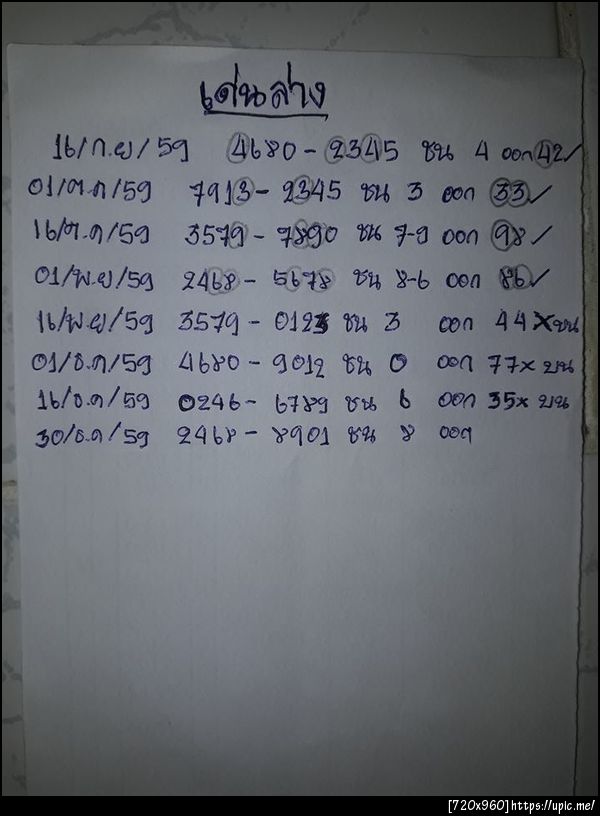 เด่นล่าง
16/ก.ย/59 4680-2345 ชน 4 ออก 42✓
01/ต.ค/59 7913-2345 ชน 3 ออก 33✓
16/ต.ค/59 3579-7890 ชน 7-9 ออก 98✓
01/พ.ย/59 2468-5678 ชน 8-6 ออก 86✓
16/พ.ย/59 3579-0123 ชน 3 ออก 44×บน
01/ธ.ค/59 4680-9012 ชน 0 ออก 77× บน
16/ธ.ค/59 0246-6789 ชน 6 ออก 35× บน
30/ธ.ค/59 2468-8901 ชน 8 ออก
[720x960]https://upic.me/